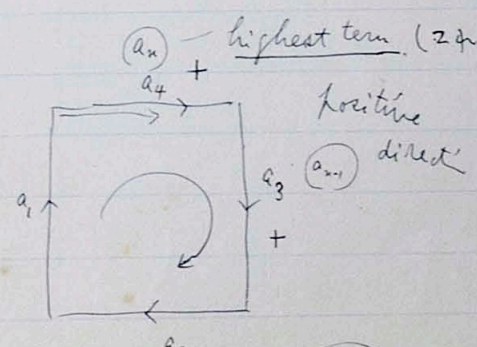 aₙ — highest term (2
a₄ +
positive
direct
a₁
a₃ aₙ₋₁
+